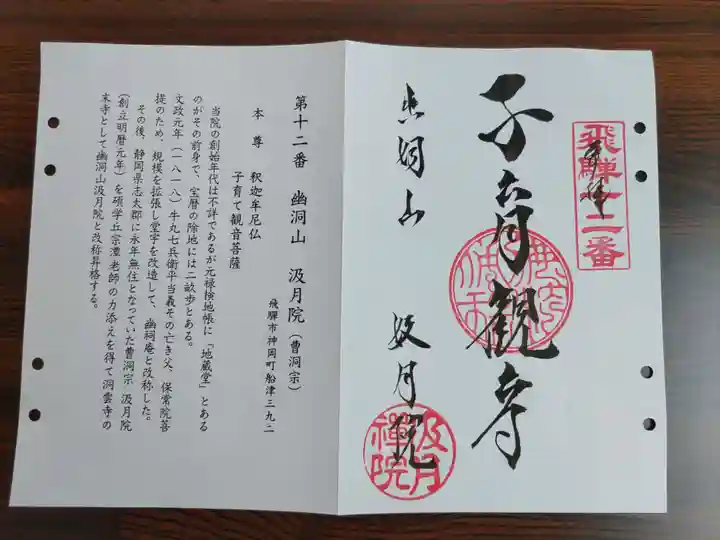 飛騨十二番
奉拝
子育観音
幽洞山
汲月院
汲月禅院
第十二番　幽洞山　汲月院（曹洞宗）
飛騨市神岡町船津三九二
本尊　釈迦牟尼仏
子育て観音菩薩
当院の創始年代は不詳であるが元禄検地帳に「地蔵堂」とある
のがその前身で、宝暦の除地には二畝歩とある。
文政元年（一八一八）牛丸七兵衛平当義その亡き父、保常院菩
提のため、規模を拡張し堂宇を改造して、幽祠庵と改称した。
その後、静岡県志太郡に永年無住となっていた曹洞宗 汲月院
（創立明暦元年）を碩学丘宗潭老師の力添えを得て洞雲寺の
末寺として幽洞山汲月院と改称昇格する。